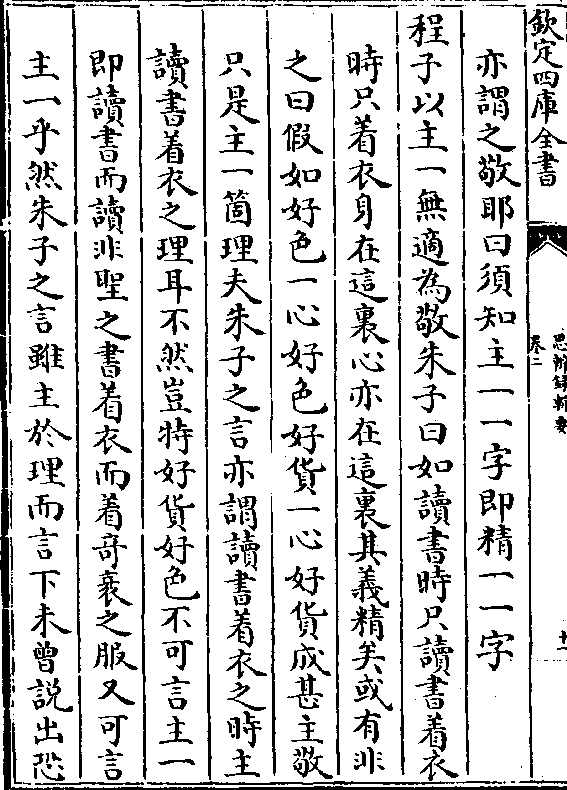 欽定四庫全書
思辨錄輯要
卷二
十一
亦謂之敬耶曰須知主一一字即精一一字
程子以主一無適為敬朱子曰如讀書時只讀書着衣
時只着衣身在這裏心亦在這裏其義精矣或有非
之曰假如好色一心好色好貨一心好貨成甚主敬
只是主一箇理夫朱子之言亦謂讀書着衣之時主
讀書着衣之理耳不然豈特好貨好色不可言主一
即讀書而讀非聖之書着衣而着奇衺之服又可言
主一乎然朱子之言雖主於理而言下未曾説出恐